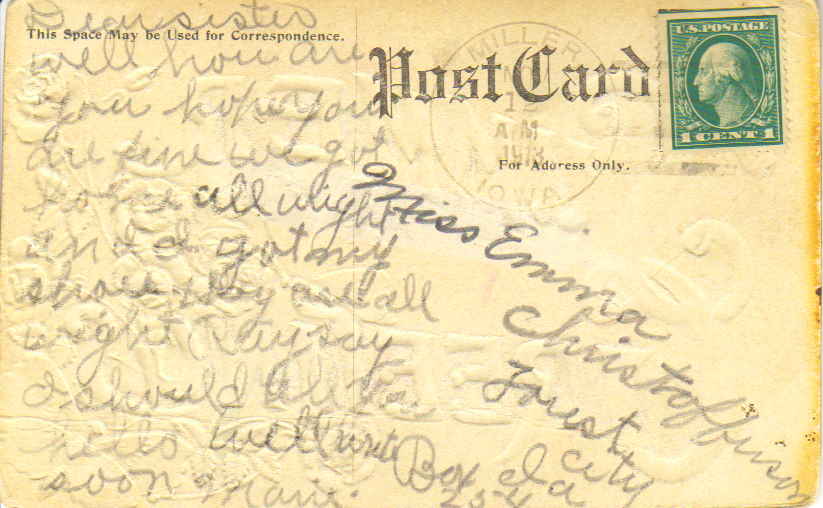 Dear sister
This Space May be Used for Correspondence.
well how are
you hope you
are fine we got
home all wright
and I got my
shoes they are all
wright Ray say
I should
hello well write
soon Mari.
Post Card
For Address Only.
MILLER
12
AM
1913
IOWA
U.S. POSTAGE
1 CENT 1
Miss Emma
Christoffinson
Forest
City
Box Ia
254